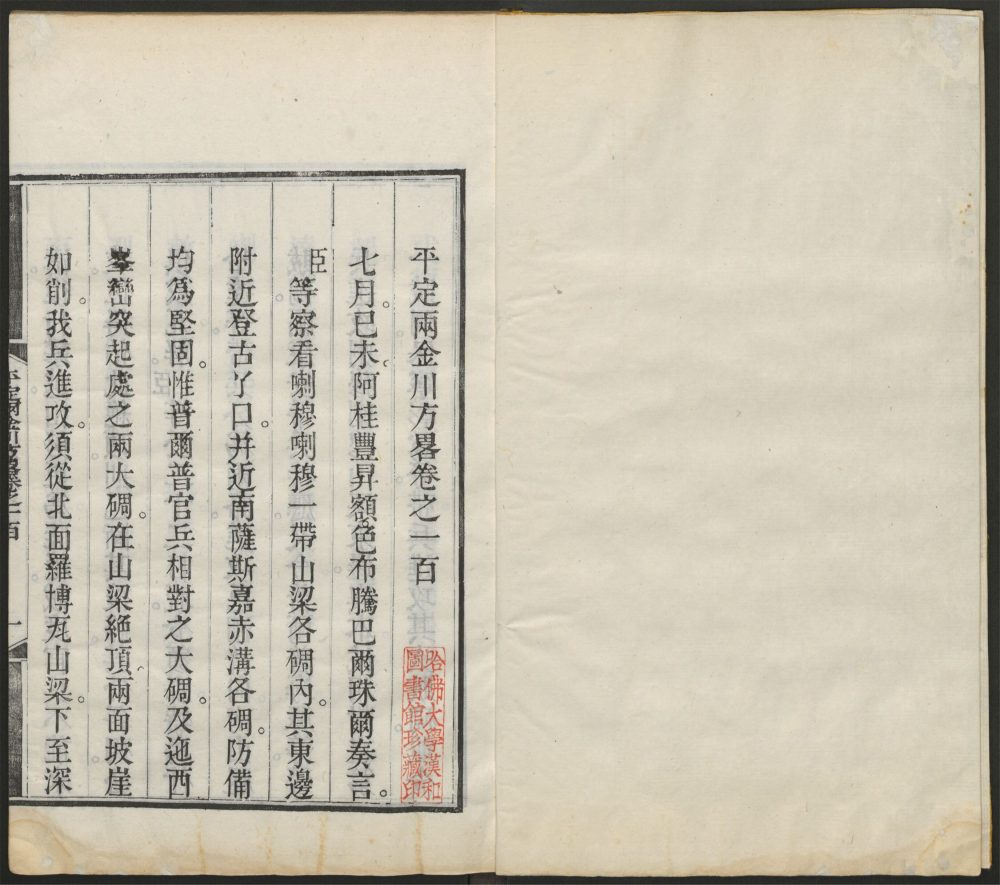 平定兩金川方畧卷之一百
七月。己未。阿桂豐昇額色布騰巴爾珠爾奏言。
臣等察看喇穆喇穆一帶山梁各碉內。其東邊
附近登古丫口。并近南薩斯嘉赤溝各碉。防備
均爲堅固。惟普爾普官兵相對之大碉。及迤西
峯巒突起處之兩大碉。在山梁絶頂。兩面坡崖
如削。我兵進攻。須從北面羅博瓦山梁。下至深
平定兩金川方畧卷之一百
一
哈佛大學漢和
圖書館珍藏印